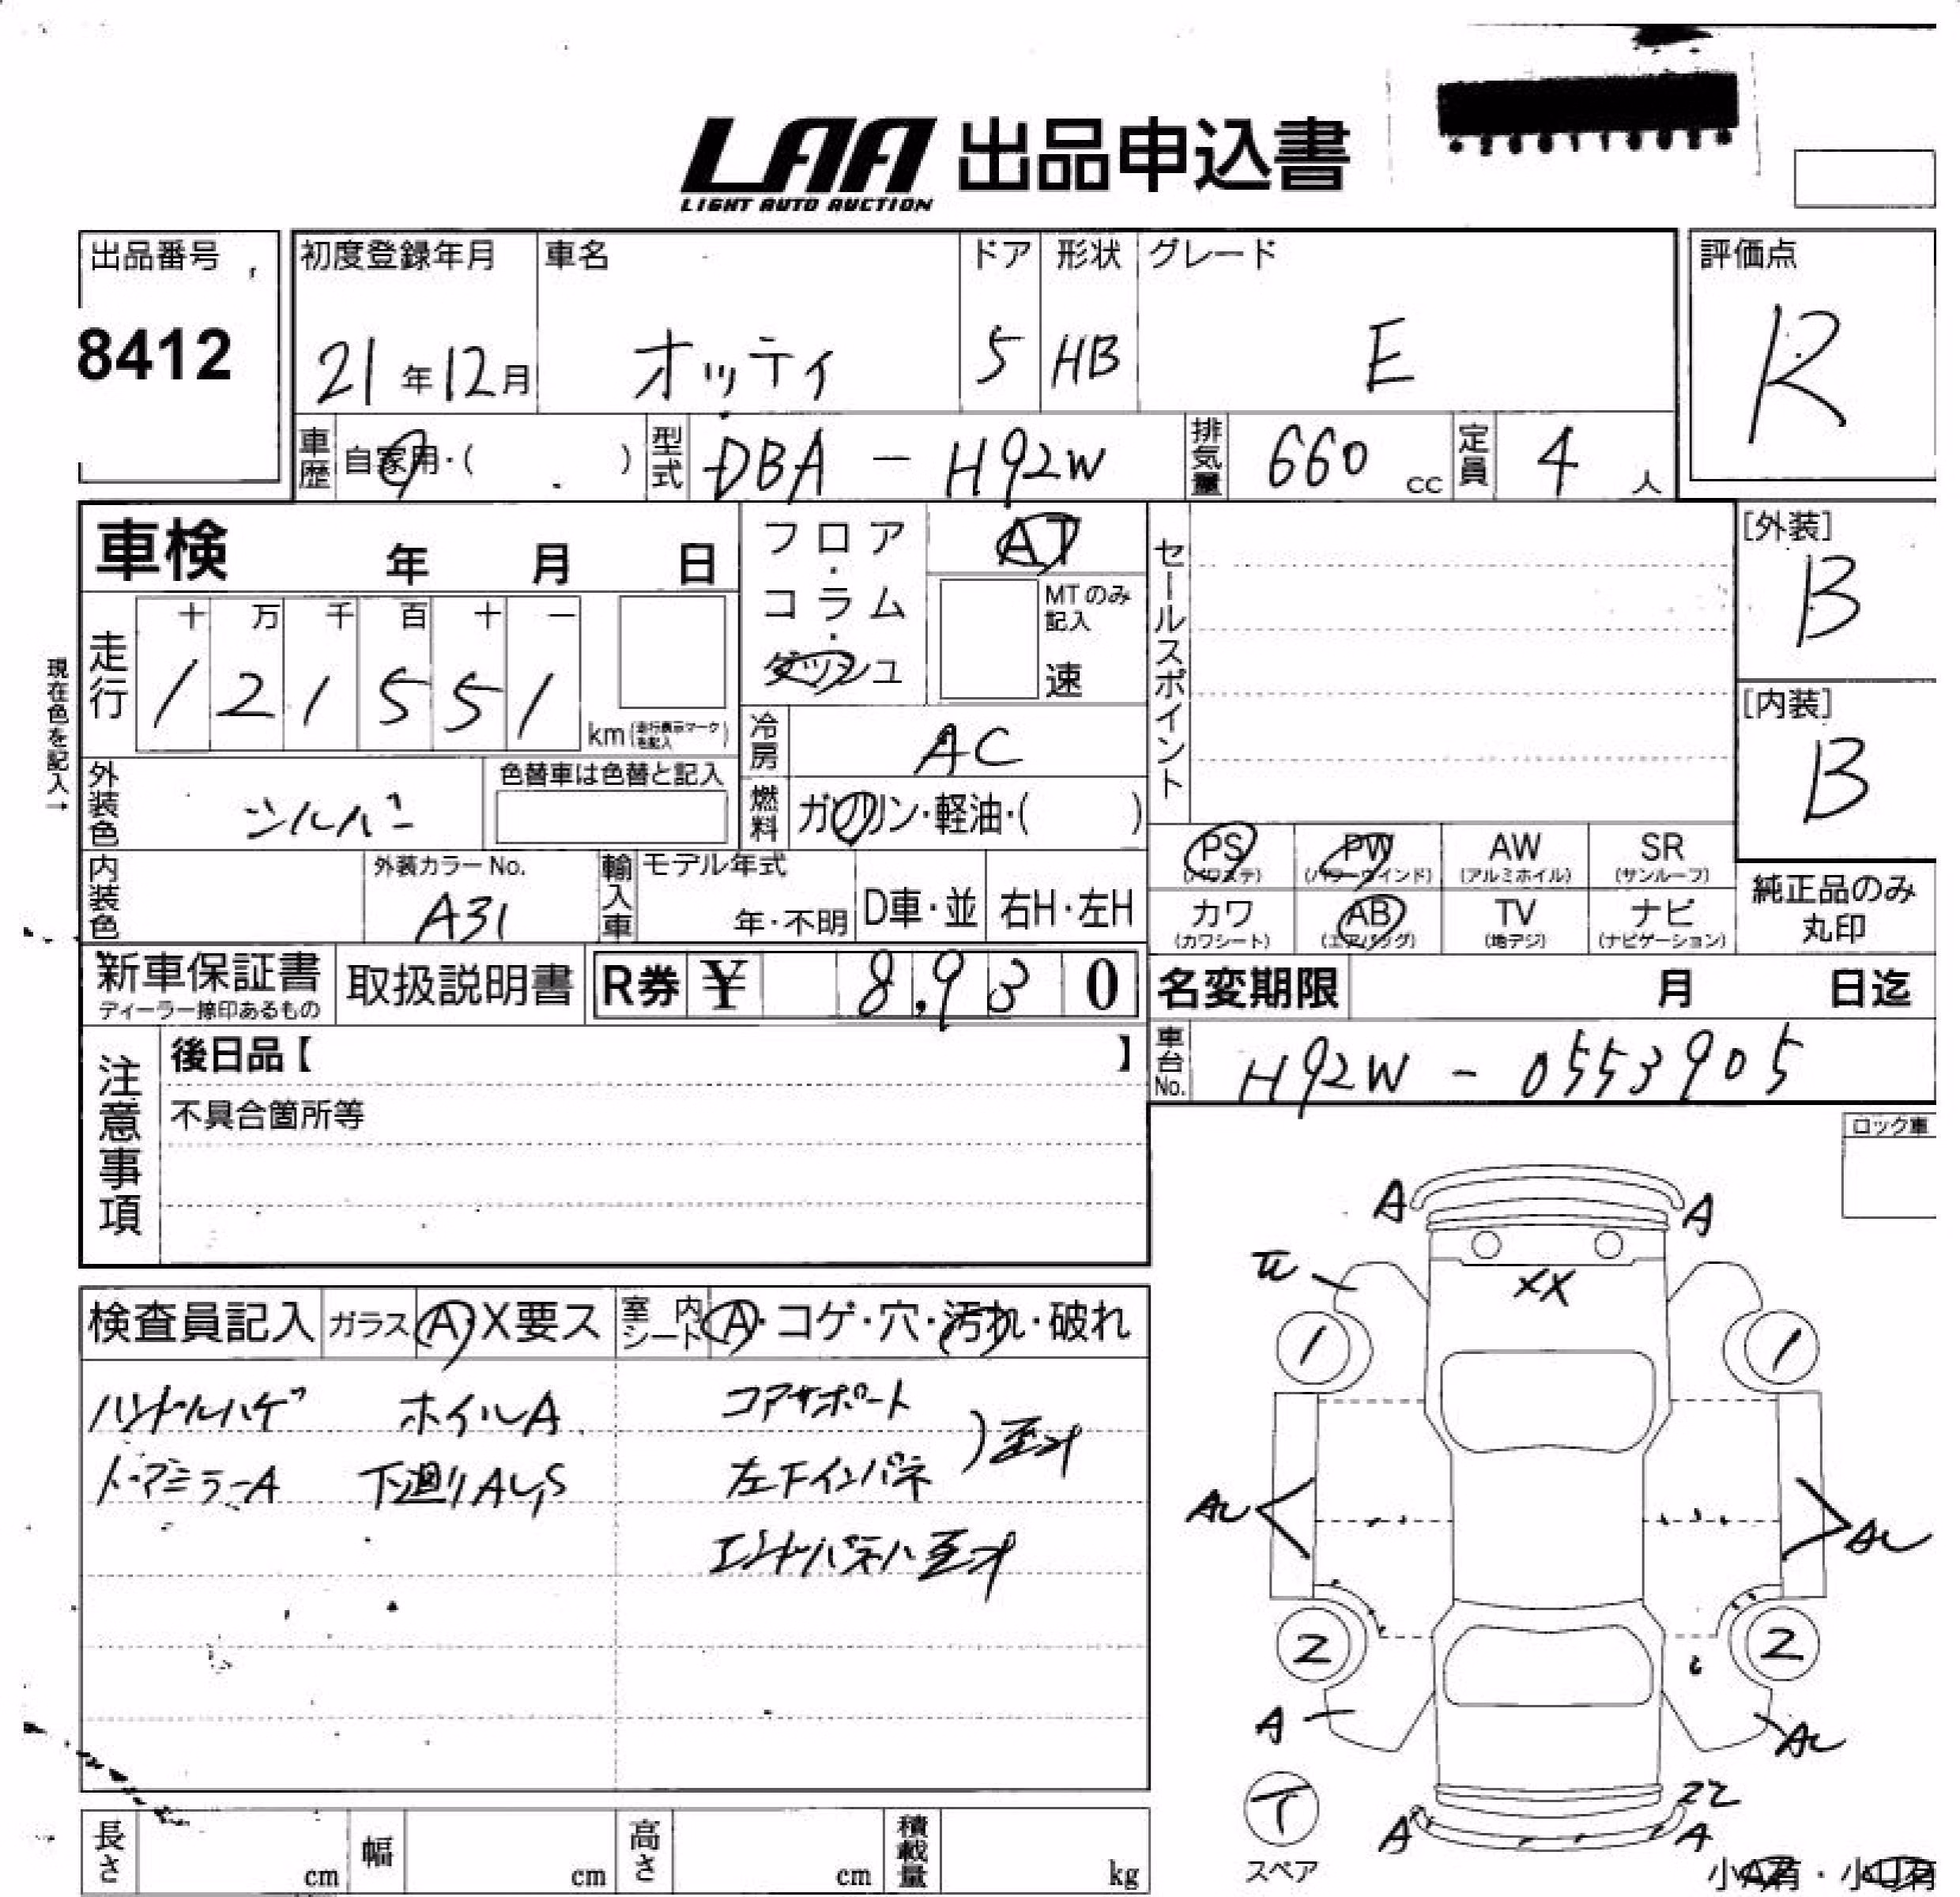 LAA 出品申込書
LIGHT AUTO AUCTION
出品番号
8412
初度登録年月
21年12月
車名
オッティ
ドア
5
形状
HB
グレード
E
評価点
R
車歴
自家用・( )
型式
DBA - H92W
排気量
660 cc
定員
4 人
車検 年 月 日
フロア・コラム・ダッシュ
AT
MTのみ記入
速
セールスポイント
[外装]
B
[内装]
B
現在色を記入→
走行
十 万 千 百 十 一
1 2 1 5 5 1
km (走行表示マークを記入)
冷房
AC
外装色
シルバー
色替車は色替と記入
燃料
ガソリン・軽油・( )
PS (パワステ)
PW (パワーウインド)
AW (アルミホイル)
SR (サンルーフ)
カワ (カワシート)
AB (エアバッグ)
TV (地デジ)
ナビ (ナビゲーション)
純正品のみ
丸印
内装色
外装カラーNo.
A31
輸入車
モデル年式
年・不明
D車・並
右H・左H
新車保証書
ディーラー捺印あるもの
取扱説明書
R券 ¥ 8,930
名変期限 月 日迄
車台No.
H92W - 0553905
注意事項
後日品【 】
不具合箇所等
ロック車
検査員記入 ガラス A・X要ス 室内シート A・コゲ・穴・汚れ・破れ
ハンドルハゲ ホイルA コアサポート
ドアミラーA 下廻りAU,S 左下インパネ
エンドパネル
A A
XX
1 1
2 2
A
T
スペア
A A
長さ cm
幅 cm
高さ cm
積載量 kg